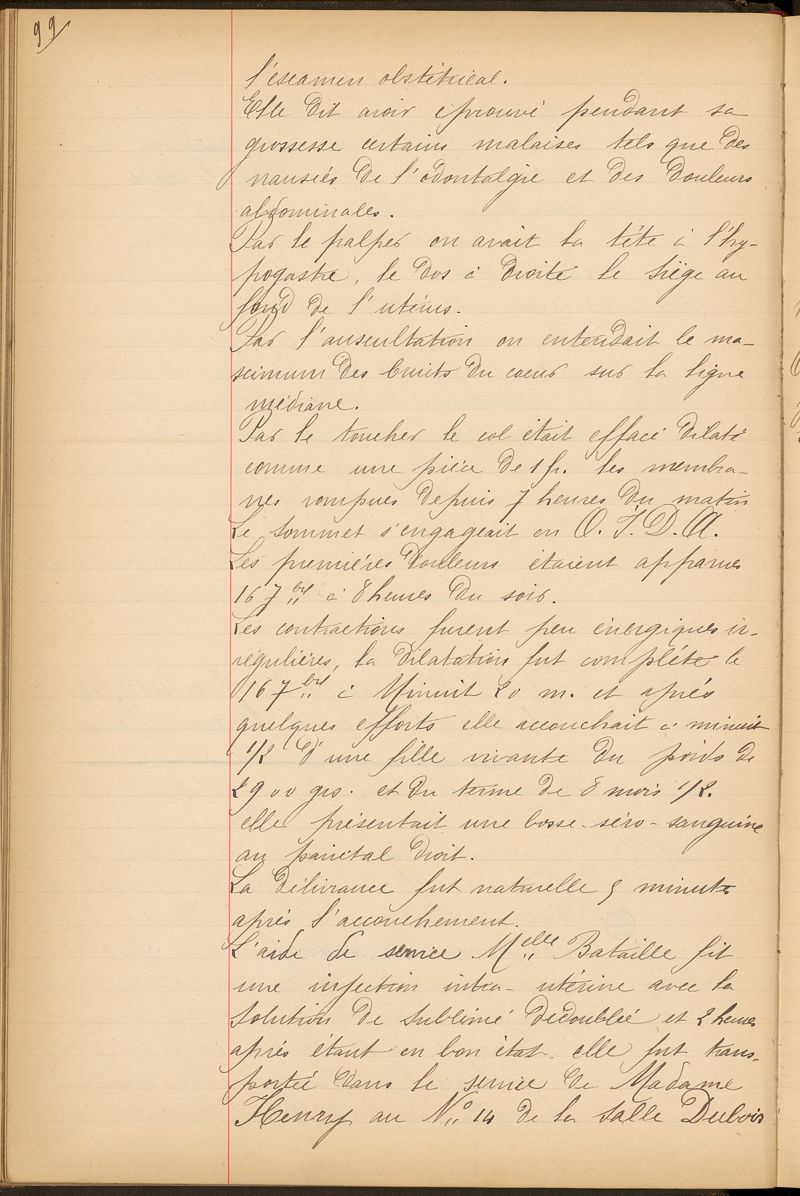 99
l'éxamen obstétrical.
Elle dit avoir éprouvé pendant sa
grossesse certains malaises tels que des
nauseés de l'odontalgie et des douleurs
abdominales.
Par le palper on avait la tête à l'hy-
pogastre, le dos à droite le siège au
fond de l'utérus.
Par l'auscultation on entendait le ma-
ximum des bruits du cœur sur la ligne
médiane.
Par le toucher le col était effacé dilaté
comme une pièce de 1 fr. les membra-
nes rompues depuis 7 heures du matin
Le sommet s'engageait en O. I. D. A.
Les premières douleurs étaient apparues
le 16 7bre à 8 heures du soir.
Les contractions furent peu énergiques ir-
régulières, la dilatation fut complète le
16 7bre à Minuit 20 m. et après
quelques efforts elle accouchait à minuit
1/2 d'une fille vivante du poids de
2900 grs. et du terme de 8 mois 1/2.
elle présentait une bosse-séro-sanguine
au pariétal droit.
La délivrance fut naturelle 5 minutes
après l'accouchement.
L'aide de service Melle Bataille fit
une injection intra-utérine avec la
solution de sublimé dédoublée et 2 heures
après étant en bon état. elle fut trans-
portée dans le service de Madame
Henry au No 14 de la salle Dubois